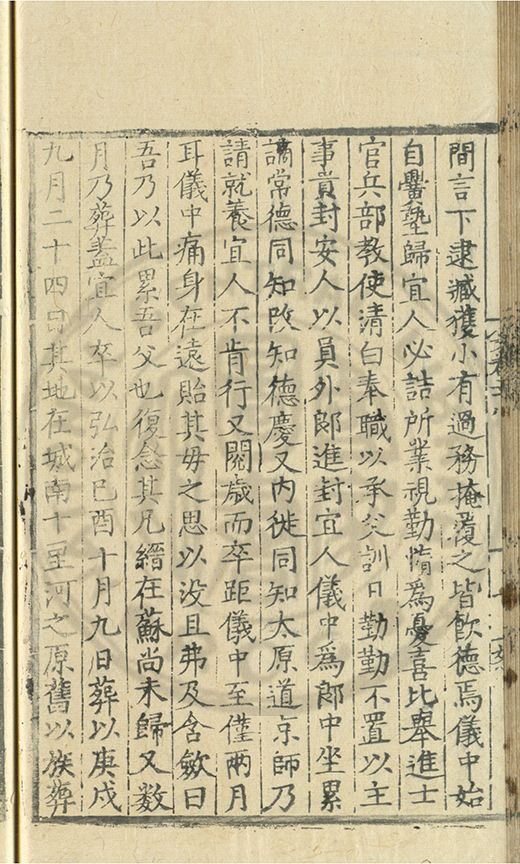 間言下逮臧獲小有過務掩覆之皆飲德焉儀中始
自黌塾歸宜人必詰所業視勤惰爲憂喜比舉進士
官兵部教使清白奉職以承父訓日勤勤不置以主
事貴封安人以員外郎進封宜人儀中爲郎中坐累
謫常德同知改知德慶又内徙同知太原道京師乃
請就養宜人不肯行又閱歳而卒距儀中至僅兩月
耳儀中痛身在遠貽其母之思以没且弗及含斂曰
吾乃以此累吾父也復念其兄縉在蘇尚未歸又数
月乃葬蓋宜人卒以弘治己酉十月九日葬以庚戌
九月二十四日其地在城南十里河之原舊以族葬